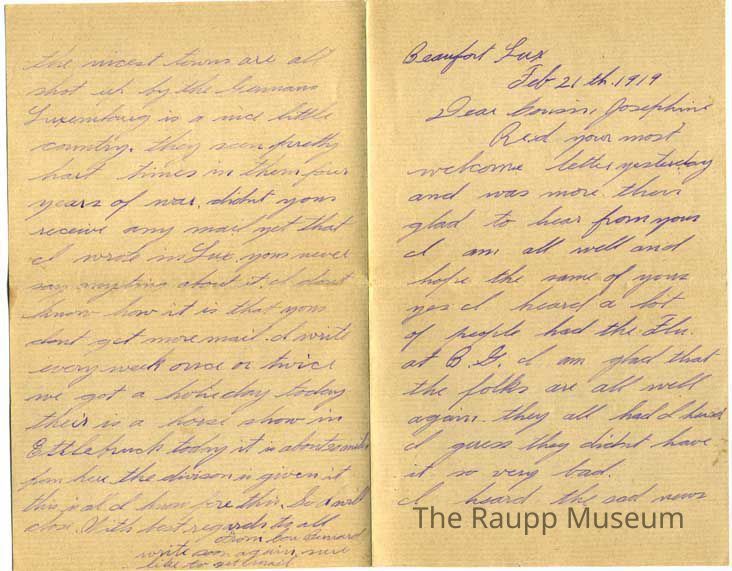 Beaufort Lux
Feb 21th. 1919
Dear Cousin, Josephine
Recd your most
welcome letter yesterday
and was more then
glad to hear from yous
I am all well and
hope the same of yous
yes I heard a lot
of people had the Flu.
at B.G. I am glad that
the folks are all well
again. they all had I heard
I guess they didnt have
it so very bad.
I heard the sad news
the nicest towns are all
shot up by the Germans
Luxembourg is a nice little
country. they seen pretty
hart times in them four
years of war. didnt yous
receive any mail yet that
I wrote in Lux. yous never
say anything about it. I dont
know how it is that yous
dont get more mail. I write
every week once or twice
we got a holieday today
their is a horse show in
Ettlebruck today it is about
from here the divison is given it
this is all I know fore this. So I will
close. With best regards to all
From Cou
write soon again, sure
like to get mail
The Raupp Museum